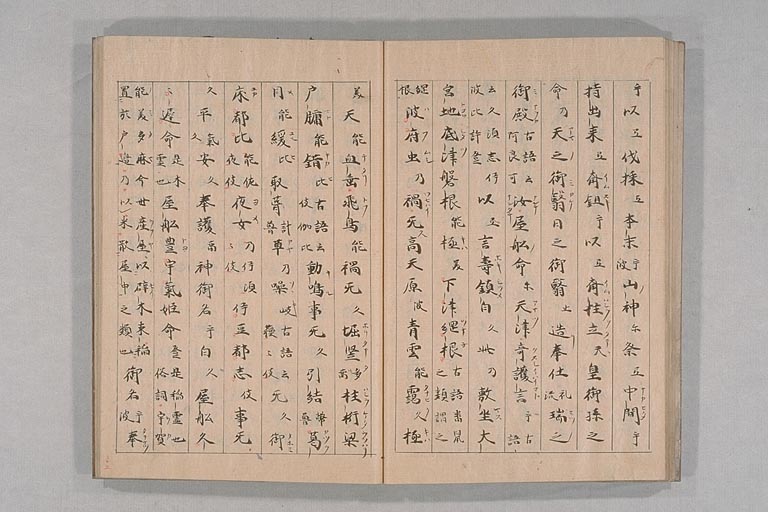 乎以弖伐採弖本末乎波山神尓祭弖中間乎
持出来弖斎鉏乎以弖斎柱立天皇御孫之
命乃天之御翳日之御翳止造奉仕礼流瑞之
御殿古語云阿良可汝屋船命尓天津奇護言乎古語
云久須志伊波比許登以弖言寿鎮白久此乃敷坐大
宮地底津磐根能極美下津綱根古語番縄之類謂之
綱根波府虫乃禍无久高天原波青雲能靄久極
美天能血垂飛鳥能禍无久堀竪多柱桁梁
戸牖能錯比古語云伎加比動鳴事无久引結幣留葛
目能緩比取葺計留草乃噪岐古語云蘇々伎无久御
床都比能佐夜伎夜女乃伊須々伎伊豆都志伎事无
久平気久安久奉護留神御名乎白久屋船久
々遅命是木霊也屋船豊宇気姫命登是稲霊也俗詞宇賀
能美多麻今世産屋以辟木束稲置於戸邊乃以米散屋中之類也御名乎波奉